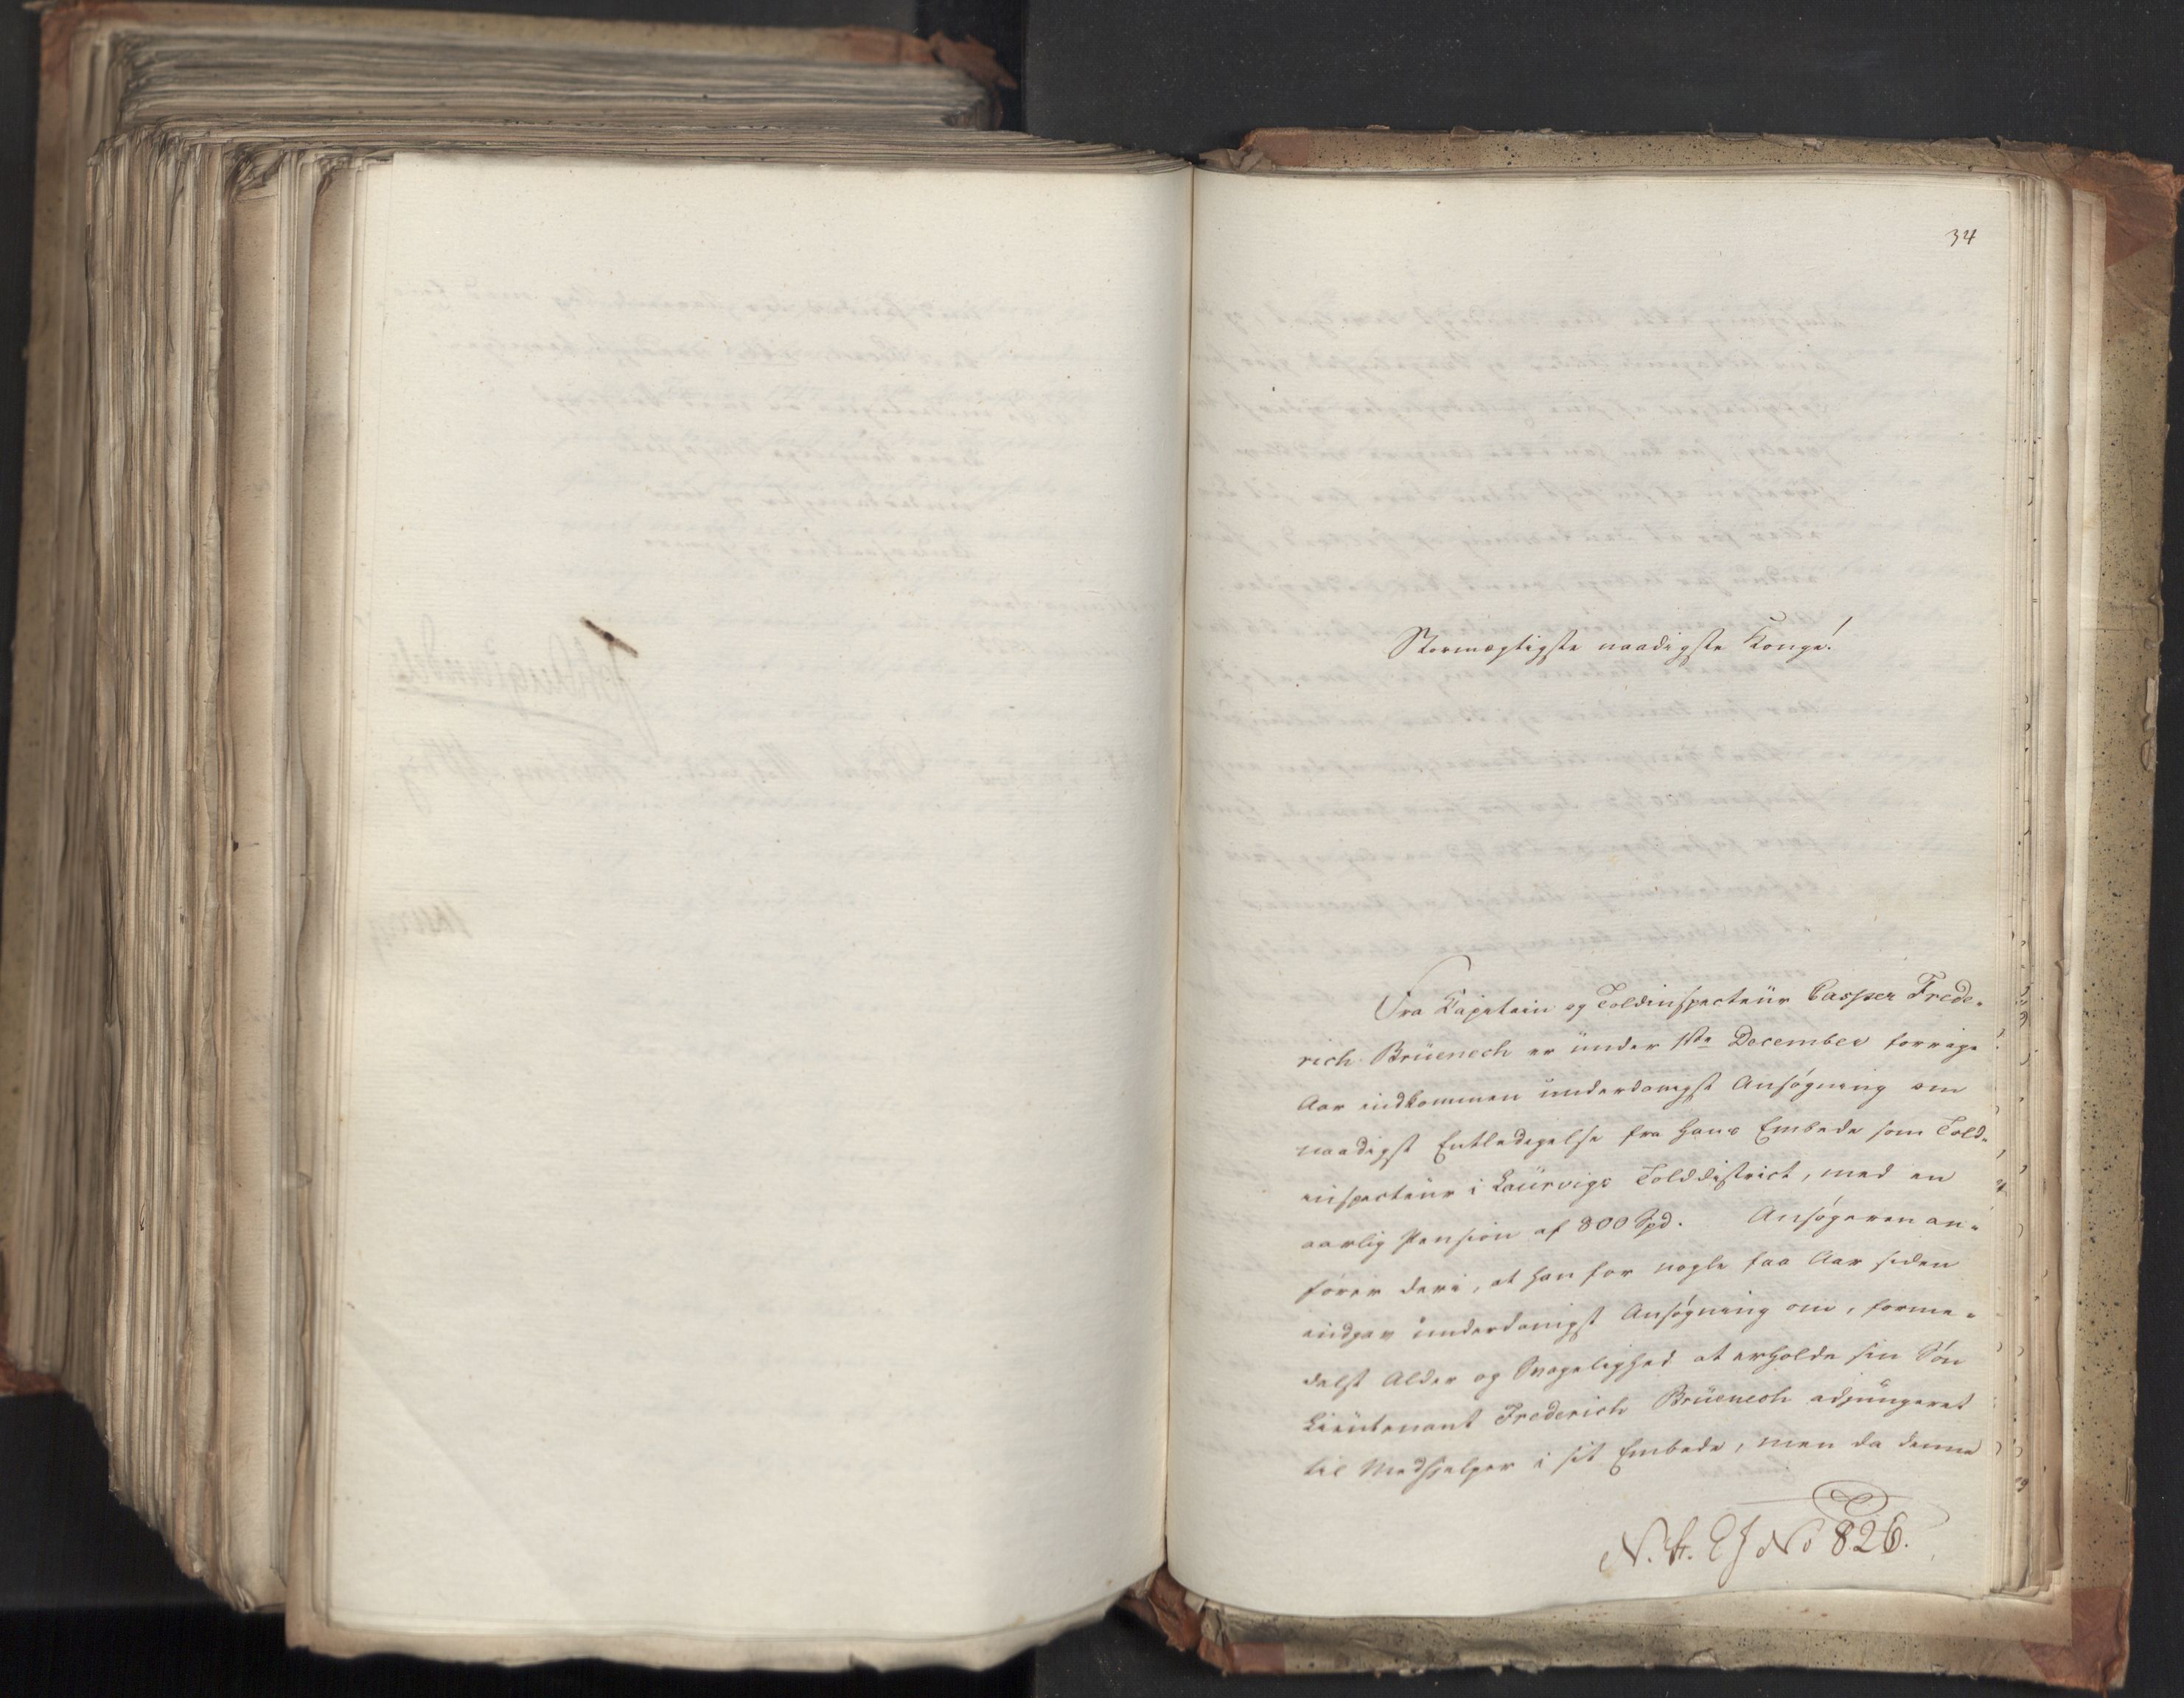 34
Stormægtigste naadigste Konge!
Fra Kapitein og Toldinspecteur Casper Frede-
rich Brüenech er under 1ste December forrige
Aar indkommen underdanigst Ansøgning om
naadigst Entledigelse fra hans Embede som Told-
inspecteur i Laurvigs Tolddistrict, med en
aarlig Pension af 800 Spd. Ansøgeren an-
fører deri, at han for nogle faa Aar siden
indgav underdanigst Ansøgning om, forme-
delst Alder og Svagelighed at erholde sin Søn
Lieutenant Frederich Brüenech adjungeret
til Medhjelper i sit Embede, men da denne
No 826.